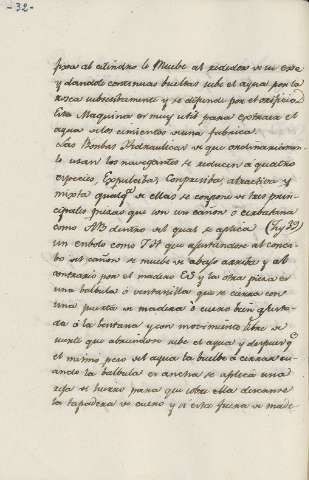 -32-
fixa al cilindro le Muebe al rededor de su exe
y dandole continuas bueltas sube el agua por la
rosca subcesibamente y se difunde por el orificio
Esta Maquina es muy util para extraer el
agua de los cimientos de una fabrica
Las Bombas Hidraulicas de que ordinariamen-
te usan los navegantes se reducen a quatro
especies, Expulciba, Compresiba, atractiva y
mixta qualqª. de ellas se compone de tres prin-
cipales piezas que son un cañon ó cerbatana
como AB dentro del qual se aplica (Fig 39)
un embolo como TH que ajustandose al conca-
bo del cañon se muebe de abajo arriba y al
contrario por el madero ES y la otra pieza es
una balbula ó ventanilla que se cierra con
una puerta de madera ó cuero bien ajusta-
da á la bentana y con movimiento libre de
suerte que abriendose sube el agua y despues qe
el mismo peso del agua la buelbe á cerrar cu-
ando la balbula es ancha se aplica una
reja de hierro para que sobre ella descanse
la tapadera de cuero y si esta fuera de made-